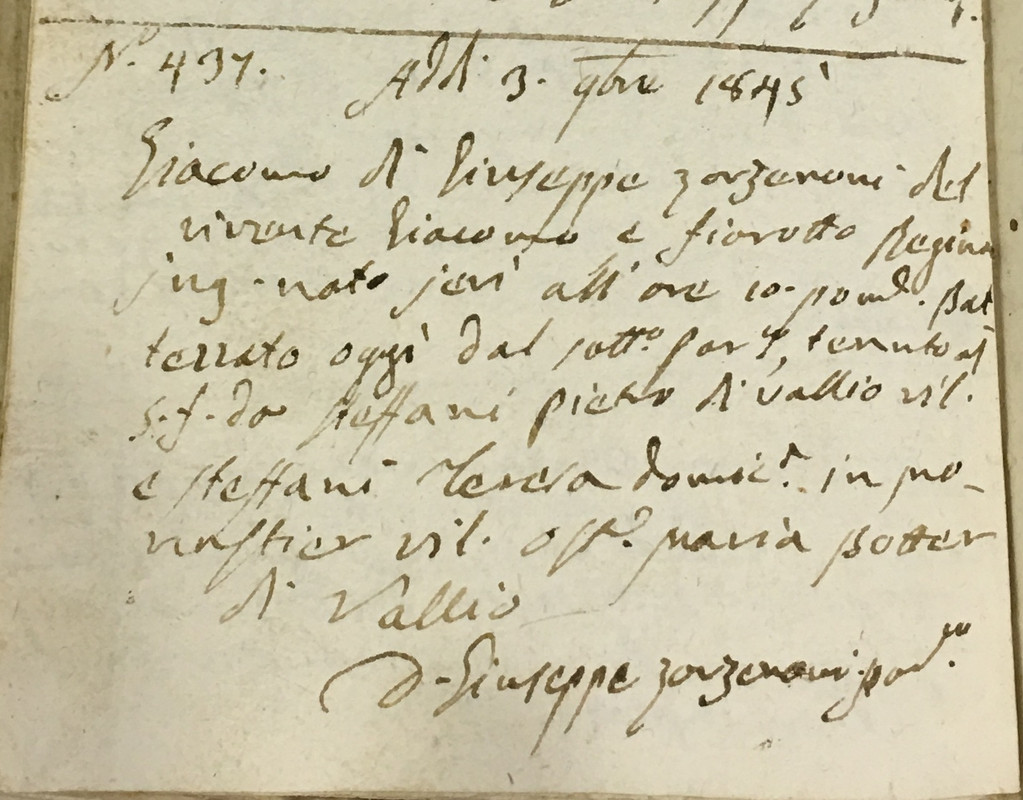 N.o 437. Addì 3. 9bre 1845
Giacomo di Giuseppe Zorzenoni del
vivente Giacomo e Fiorotto Regina
jug. nato jeri all'ore 10. pomd. Bat
tezzato oggi dal sotto. tenuto al
S. f. da Steffani Pietro di Vallio vil.
e Steffani Teresa domic.a in Mo-
nastier vil. ost.e Maria Botter
di Vallio
D. Giuseppe Zorzenoni